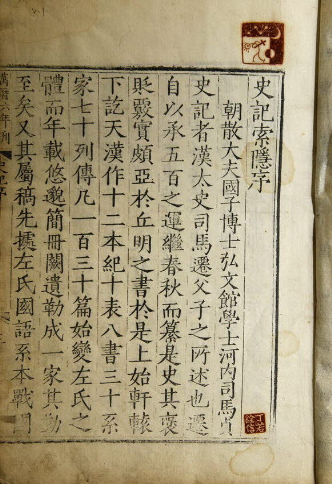 史記索隱序
朝散大夫國子博士弘文館學士河内司馬貞
史記者漢太史司馬遷父子之所述也遷
自以承五百之運繼春秋而纂是史其褒
貶覈實頗亞於丘明之書於是上始軒轅
下訖天漢作十二本紀十表八書三十系
家七十列傳凡一百三十篇始變左氏之
體而年載悠邈簡冊闕遺勒成一家其勤
至矣又其屬稿先據左氏國語系本戰國